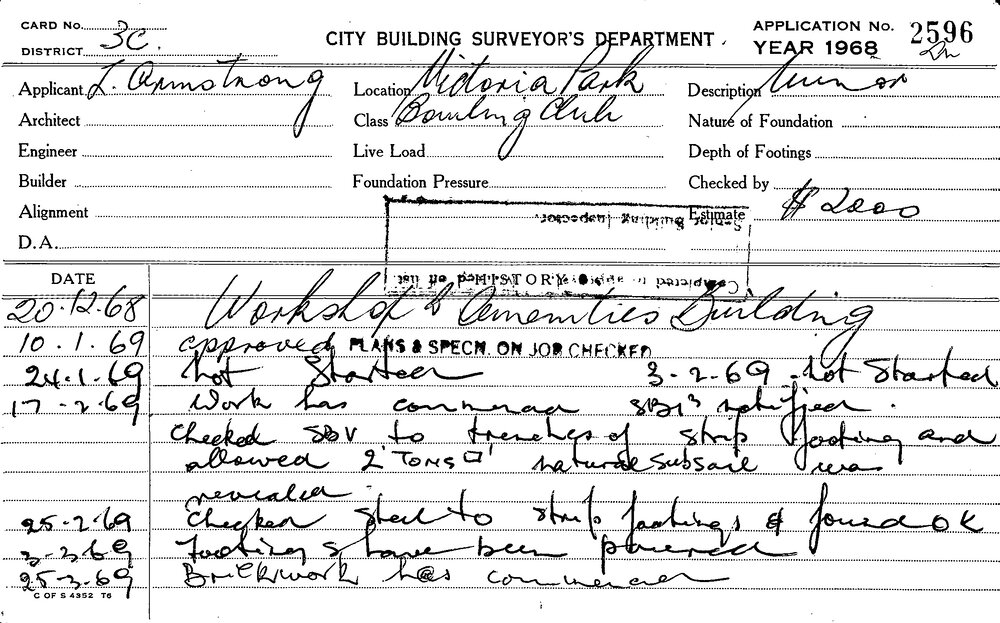 CARD No. 
DISTRICT 3C.
CITY BUILDING SURVEYOR'S DEPARTMENT.
APPLICATION No. 2596
YEAR 1968
Applicant L. Armstrong
Location Victoria Park
Description Minor
Architect
Class Bowling Club
Nature of Foundation
Engineer
Live Load
Depth of Footings
Builder
Foundation Pressure
Checked by
Alignment
Senior Building Inspector.
Estimate $2000
D.A.
Completed to approved off list.
DATE
HISTORY
20.12.68 Workshop & Amenities Building
10.1.69 approved PLANS & SPECN. ON JOB CHECKED
24.1.69 Not Started 3-2-69 - not Started
17-2-69 Work has commenced notified.
Checked SBV to trenches of strip footing and
allowed 2 Tons □' natural subsoil was
revealed.
25-2-69 Checked steel to strip footings & found OK
3-3-69 Footings have been poured
25-3-69 Brickwork has commenced
C OF S 4352 T6